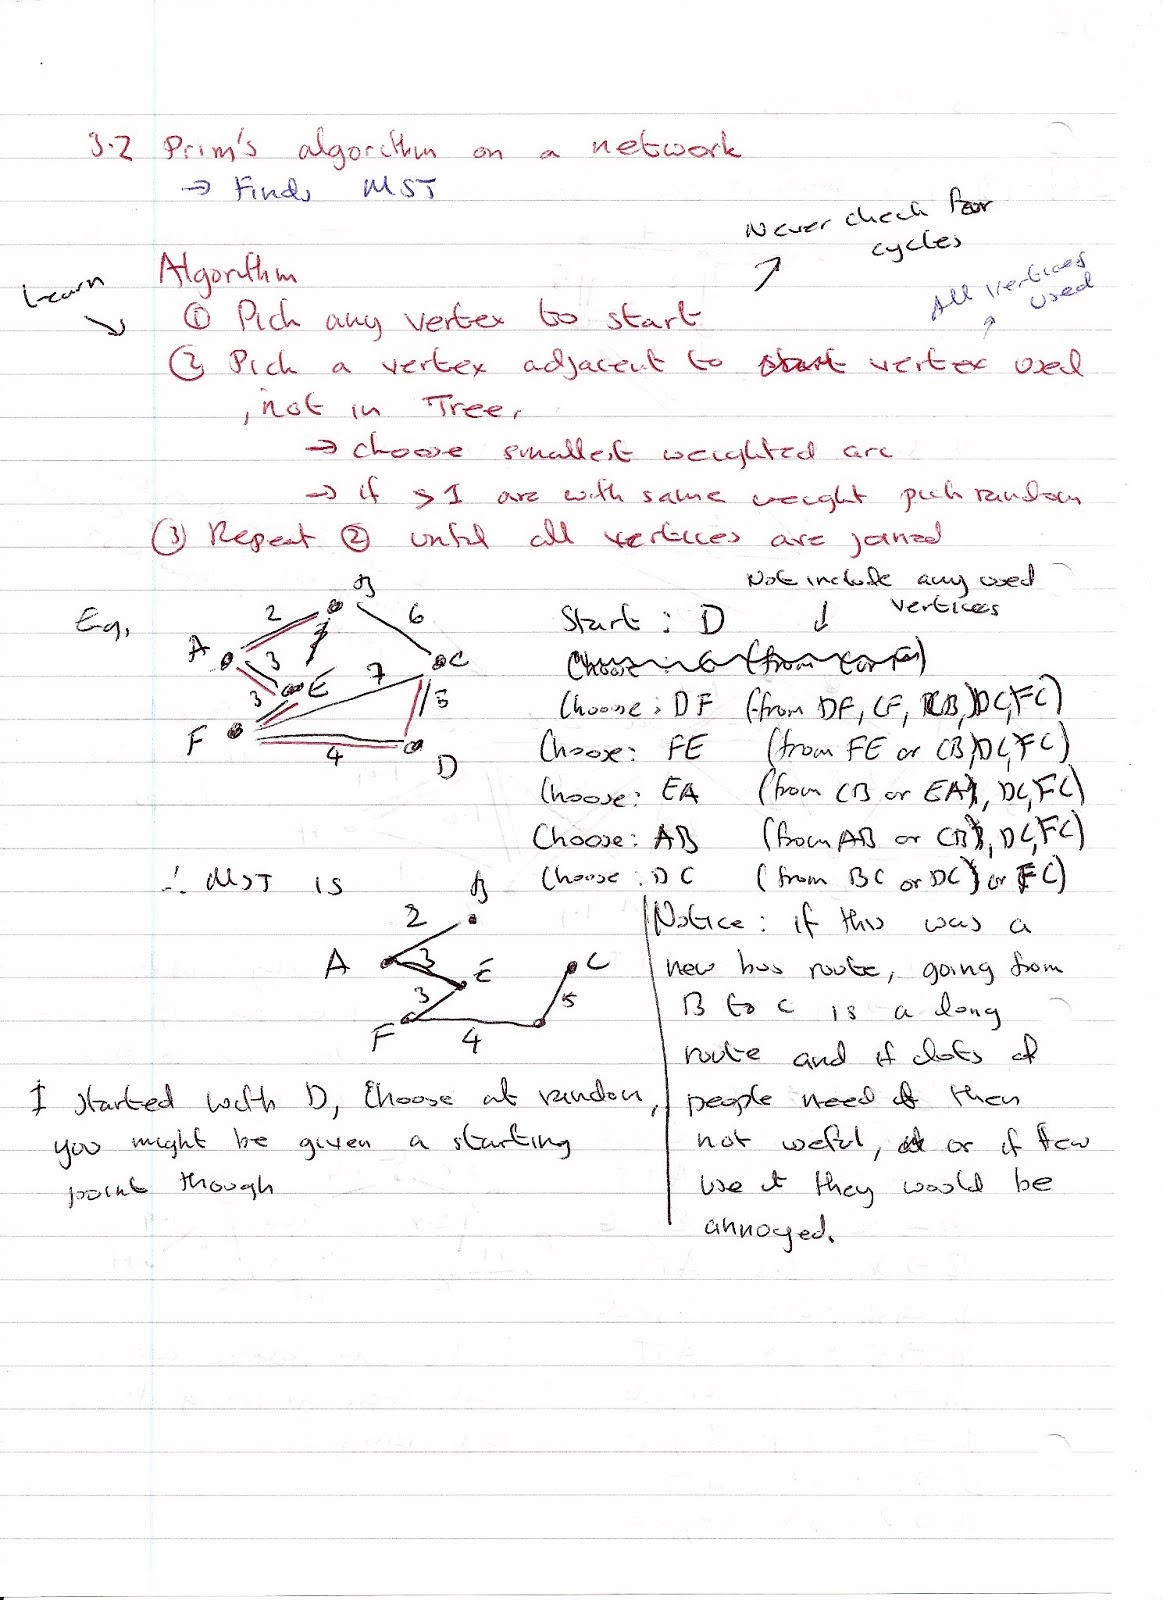 3.2 Prim's algorithm on a network
→ Finds MST
Never check for
cycles
Learn
Algorithm
All vertices
used
① Pick any vertex to start
② Pick a vertex adjacent to vertex used
, not in Tree,
→ choose smallest weighted arc
→ if >1 arc with same weight pick random
③ Repeat ② until all vertices are joined
Not include any used
vertices
Eg,
B
2
6
A
3
7
C
3
E
5
F
4
D
Start : D
Choose : DF (from DF, CF, CB, DC, FC)
Choose: FE (from FE or CB, DC, FC)
Choose: EA (from CB or EA, DC, FC)
Choose: AB (from AB or CB, DC, FC)
Choose : DC (from BC or DC or FC)
∴ MST is
B
2
A
3
E
C
3
5
F
4
Notice: if this was a
new bus route, going from
B to C is a long
route and if lots of
people need it then
not useful, or if few
use it they would be
annoyed.
I started with D, Choose at random,
you might be given a starting
point though